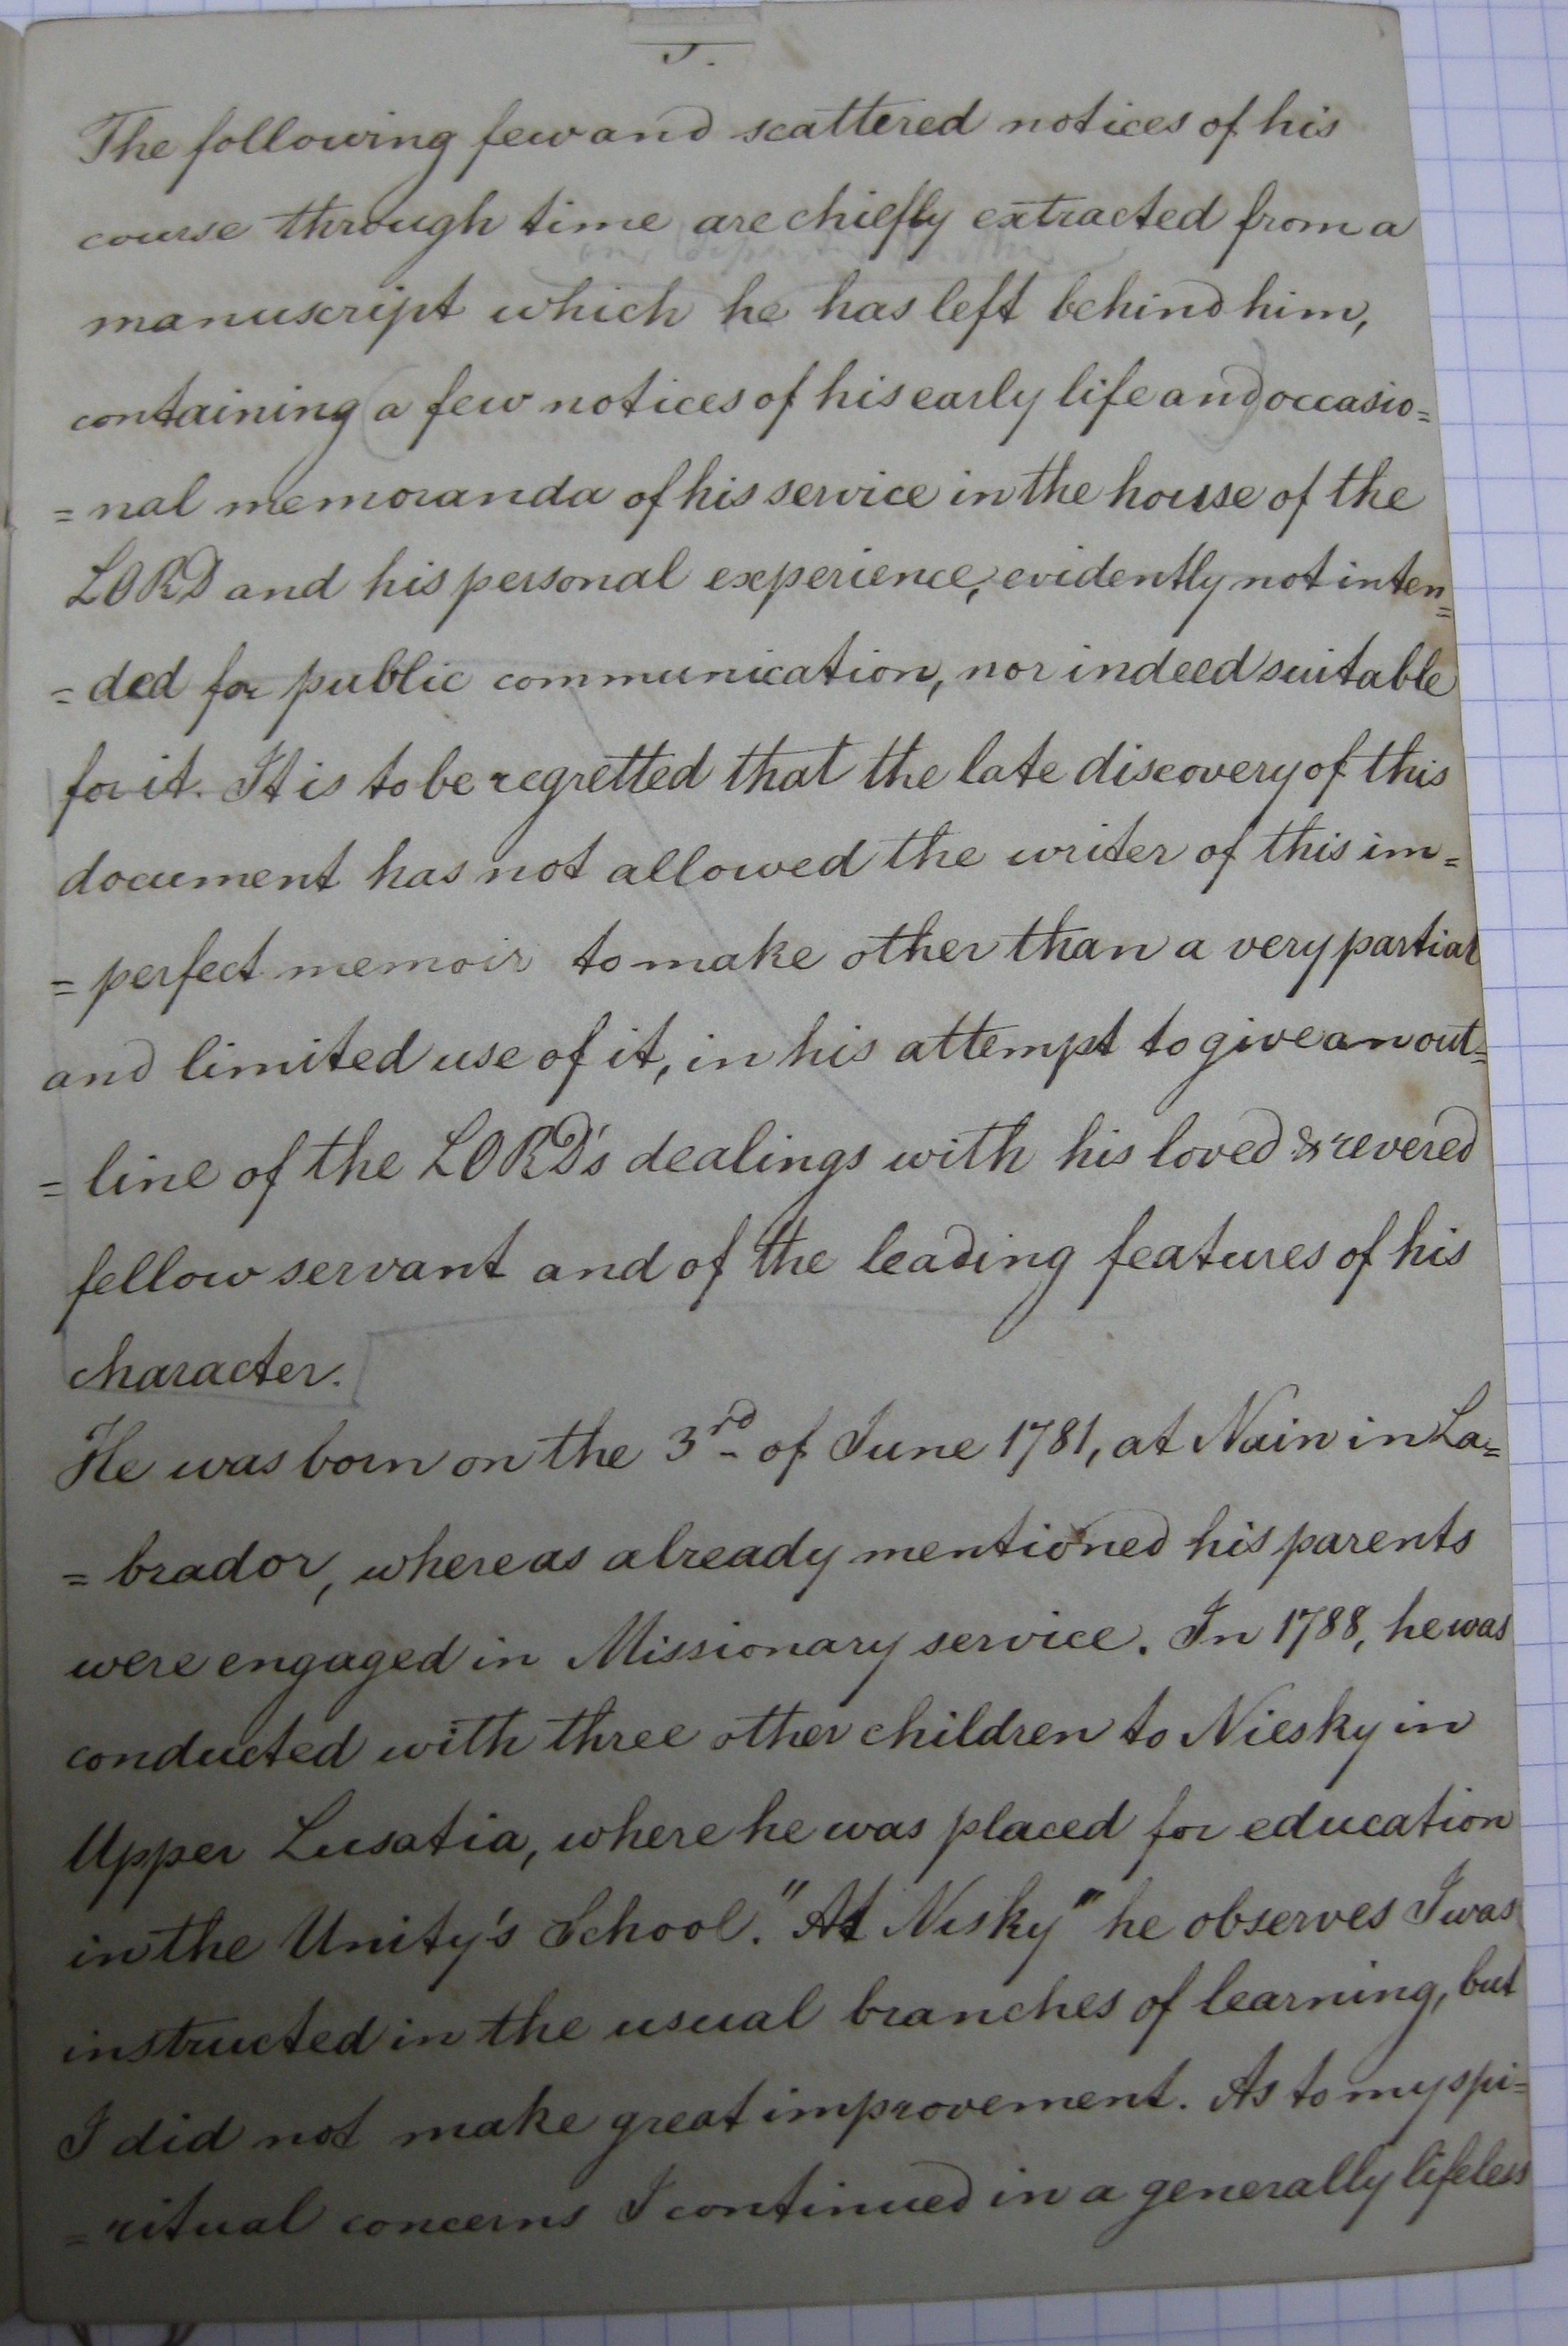 The following few and scattered notices of his
course through time are chiefly extracted from a
manuscript which he has left behind him,
containing (a few notices of his early life and) occasio=
=nal memoranda of his service in the house of the
LORD and his personal experience, evidently not inten=
=ded for public communication, nor indeed suitable
for it. It is to be regretted that the late discovery of this
document has not allowed the writer of this im=
=perfect memoir to make other than a very partial
and limited use of it, in his attempt to give an out=
=line of the LORD's dealings with his loved & revered
fellow servant and of the leading features of his
character.
He was born on the 3rd of June 1781, at Nain in La=
=brador, where as already mentioned his parents
were engaged in Missionary service. In 1788, he was
conducted with three other children to Niesky in
Upper Lusatia, where he was placed for education
in the Unity's School. "At Nisky" he observes I was
instructed in the usual branches of learning, but
I did not make great improvement. As to my spi=
=ritual concerns I continued in a generally lifeless